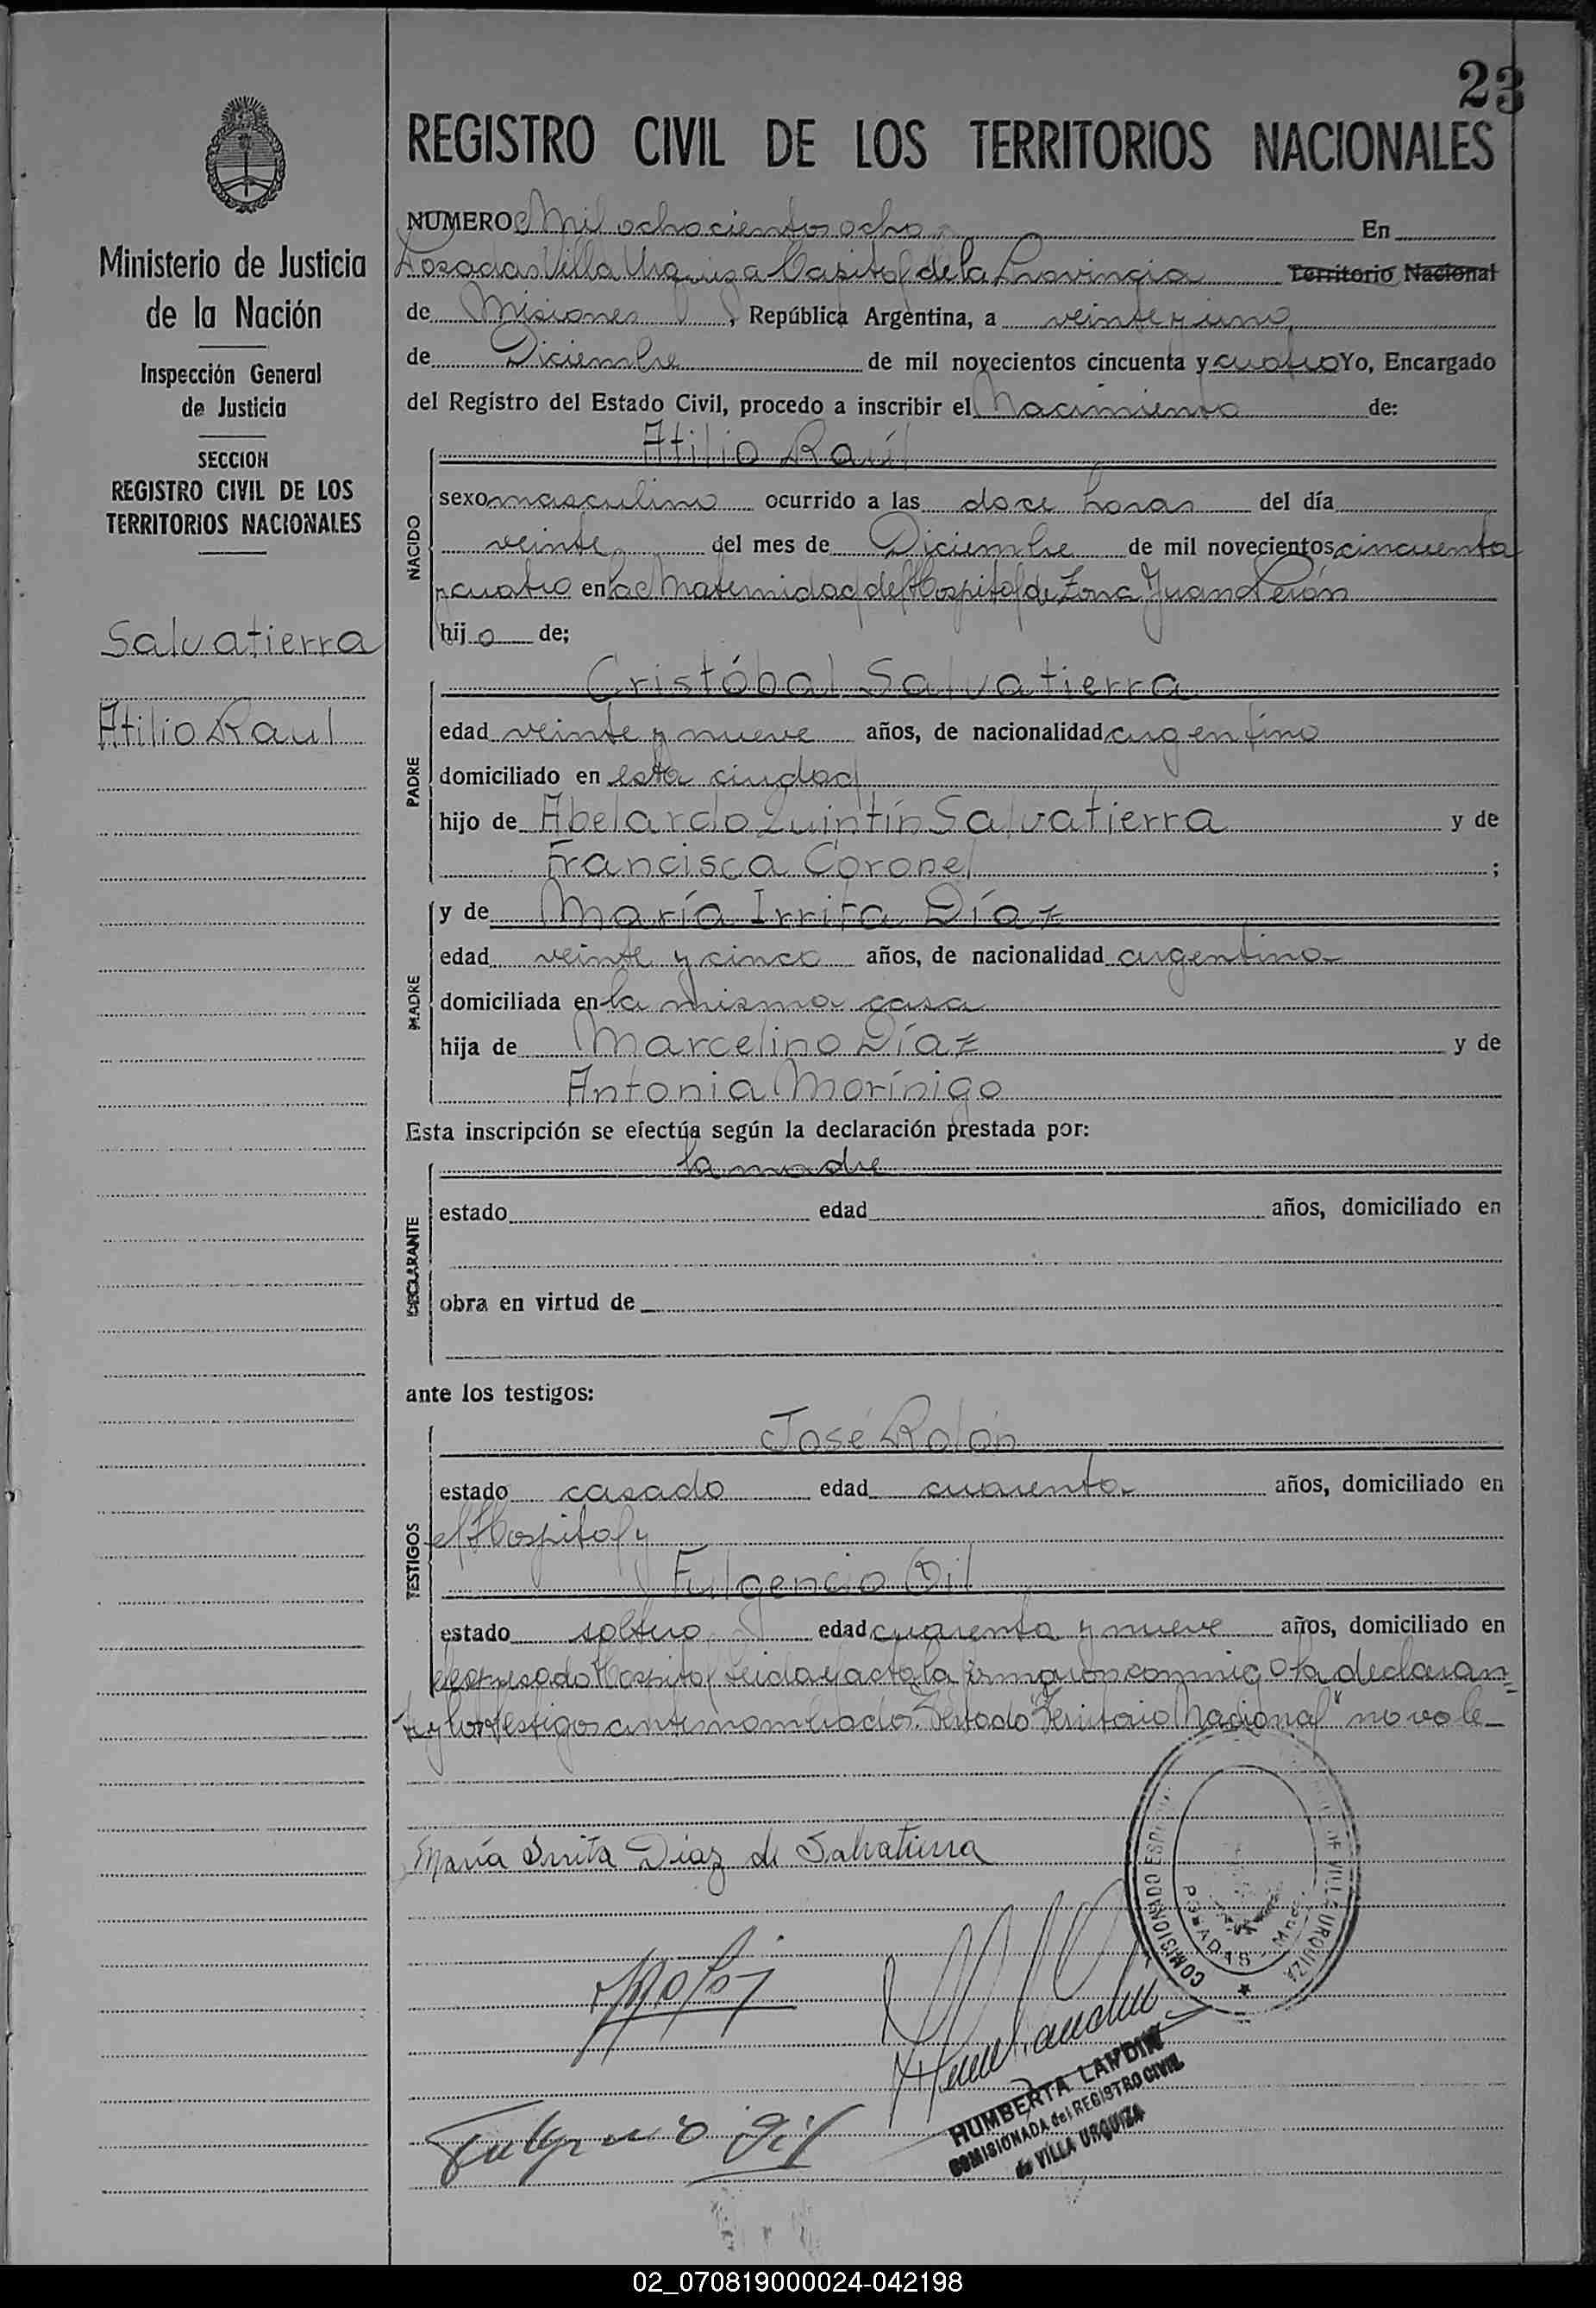 23
REGISTRO CIVIL DE LOS TERRITORIOS NACIONALES
Ministerio de Justicia
de la Nación
Inspección General
de Justicia
SECCION
REGISTRO CIVIL DE LOS
TERRITORIOS NACIONALES
Salvatierra
Atilio Raul
NUMERO Mil ochocientos ocho En
Posadas Villa Urquiza Capital de la Provincia Territorio Nacional
de Misiones, República Argentina, a veinte y uno
de Diciembre de mil novecientos cincuenta y cuatro Yo, Encargado
del Registro del Estado Civil, procedo a inscribir el Nacimiento de:
NACIDO
Atilio Raúl
sexo masculino ocurrido a las doce horas del día
veinte del mes de Diciembre de mil novecientos cincuenta
y cuatro en la Maternidad del Hospital de Zona Juan Perón
hijo de;
PADRE
Cristóbal Salvatierra
edad veinte y nueve años, de nacionalidad argentino
domiciliado en esta ciudad
hijo de Abelardo Quintín Salvatierra y de
Francisca Coronel ;
MADRE
y de María Irrita Díaz
edad veinte y cinco años, de nacionalidad argentina
domiciliada en la misma casa
hija de Marcelino Díaz y de
Antonia Morínigo
Esta inscripción se efectúa según la declaración prestada por:
DECLARANTE
la madre
estado edad años, domiciliado en
obra en virtud de
ante los testigos:
TESTIGOS
José Rolón
estado casado edad cuarenta años, domiciliado en
el Hospital y
Fulgencio Gil
estado soltero edad cuarenta y nueve años, domiciliado en
el expresado Hospital Leida el acta la firmaron conmigo la declaran=
te y los testigos antes nombrados. Testado "Territorio Nacional" no vale
María Irrita Díaz de Salvatierra
COMISIONADO DE VILLA URQUIZA
POSADAS Mnes.
HUMBERTA LANDIN
COMISIONADA del REGISTRO CIVIL
de VILLA URQUIZA
Fulgencio Gil
02_070819000024-042198